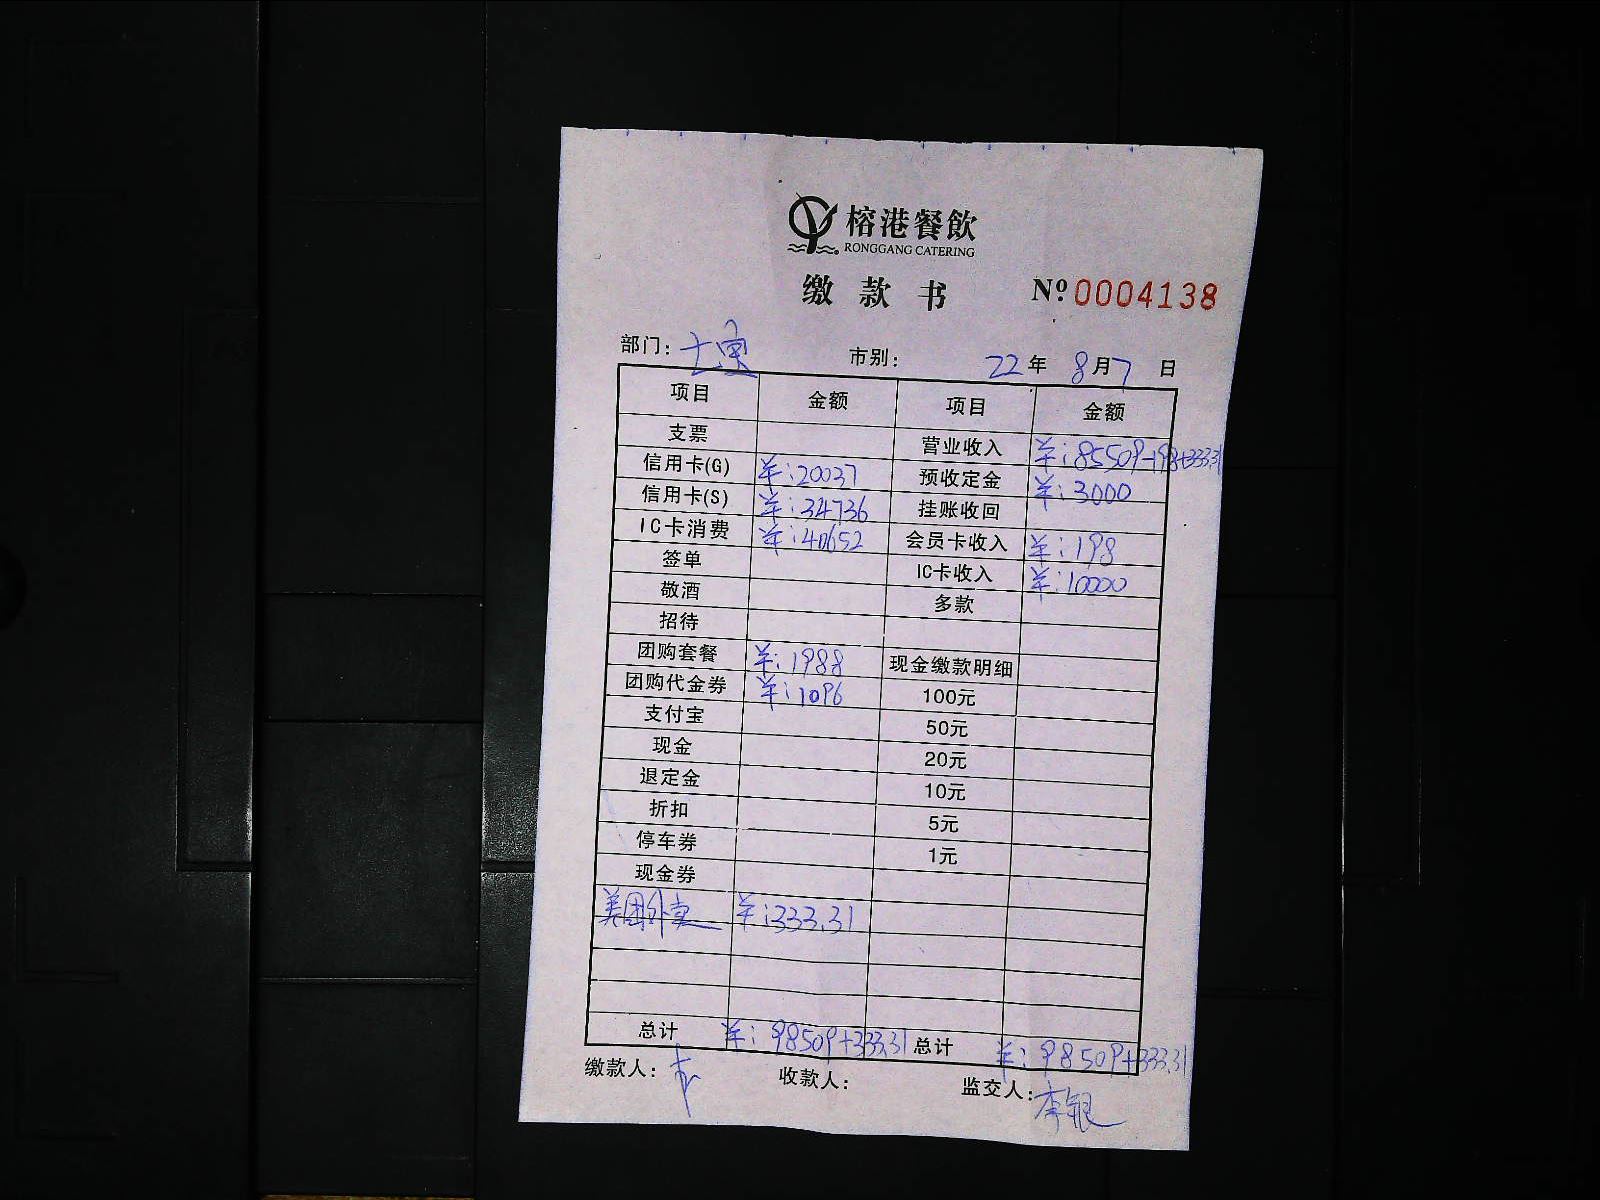 榕港餐飲
RONGGANG CATERING
缴款书 Nº 0004138
部门： 市别： 22年 8月7日
项目 金额 项目 金额
支票 营业收入 ¥:85509-198+333.31
信用卡(G) ¥:20037 预收定金 ¥:3000
信用卡(S) ¥:34736 挂账收回
IC卡消费 ¥:40652 会员卡收入 ¥:198
签单 IC卡收入 ¥:10000
敬酒 多款
招待
团购套餐 ¥:1988 现金缴款明细
团购代金券 ¥:1096 100元
支付宝 50元
现金 20元
退定金 10元
折扣 5元
停车券 1元
现金券
美团外卖 ¥:333.31
总计 ¥:98509+333.31 总计 ¥:98509+333.31
缴款人： 收款人： 监交人：李银